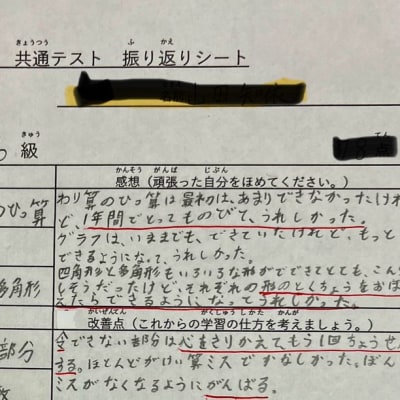 きょうつう ふ かえ
共通テスト 振り返りシート
きゅう
級
てん
点
かんそう がんば じぶん
感想（頑張った自分をほめてください。）
のひっ算
わり算のひっ算は最初は、あまりできなかったけれ
ど、1年間でとってものびて、うれしかった。
グラフは、いままでも、できていたけれど、もっと
できるようになって、うれしかった。
多角形
四角形と多角形もいろいろな形がでてきてとても、こん
しそうだったけど、それぞれの形のとくちょうをおぼ
えたらできるようになってうれしかった。
かいぜんてん がくしゅう しかた かんが
改善点（これからの学習の仕方を考えましょう。）
部分
今できない部分は心をきりかえてもう1回ちょうせん
する。ほとんどがけい算ミスでかなしかった。
ミスがなくなるようにがんばる。